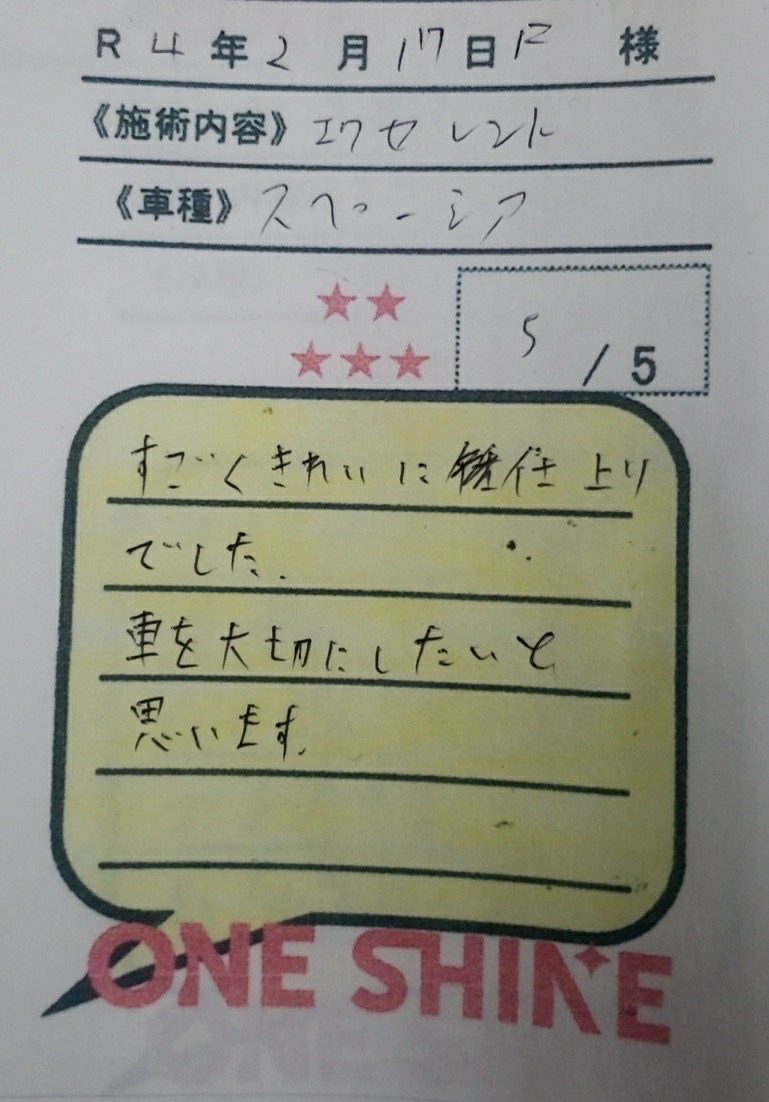 R 4 年 2 月 17 日 P 様
《施術内容》エクセレント
《車種》スペーシア
5 / 5
すごくきれいに仕上り
でした.
車を大切にしたいと
思います.
ONE SHINE